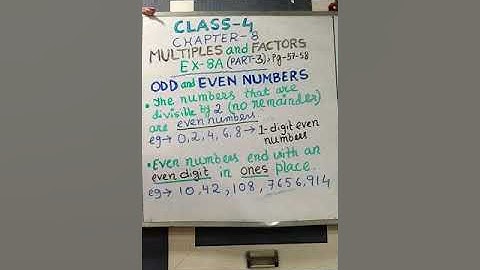 CLASS-4
CHAPTER-8
MULTIPLES and FACTORS
EX-8A (PART-3), Pg-57-58
ODD and EVEN NUMBERS
• The numbers that are
divisible by 2 (no remainder)
are even numbers
eg → 0,2,4,6,8 → 1-digit even
numbers
• Even numbers end with an
even digit in ones place.
eg → 10,42,108,7656,914